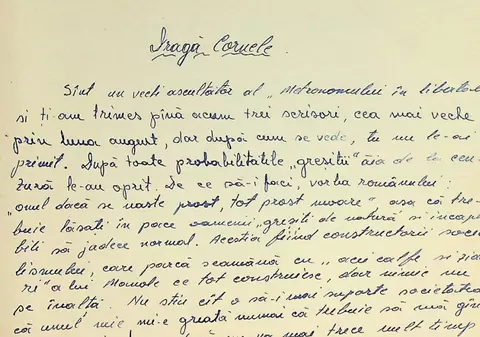 Dragă Cornele
Sînt un vechi ascultător al „Metronomului în libertate
și ți-am trimes pînă acum trei scrisori, cea mai veche
prin luna august, dar după cum se vede, tu nu le-ai
primit. După toate probabilitățile „greșiții" ăia de la cen-
zură le-au oprit. De ce să-i faci, vorba românului:
„omul dacă se naște prost, tot prost moare", așa că tre-
buie lăsați în pace oamenii „greșiți de natură și incapa-
bili să judece normal. Aceștia fiind constructorii socia-
lismului, care parcă seamănă cu „acei calfe și zida
ri" a lui Manole ce tot construiesc, doar nimic nu
se înalță. Nu știu cît o să-i mai suporte societatea
că unul mie mi-e greață numai că trebuie să mă gîn
mai trece mult timp